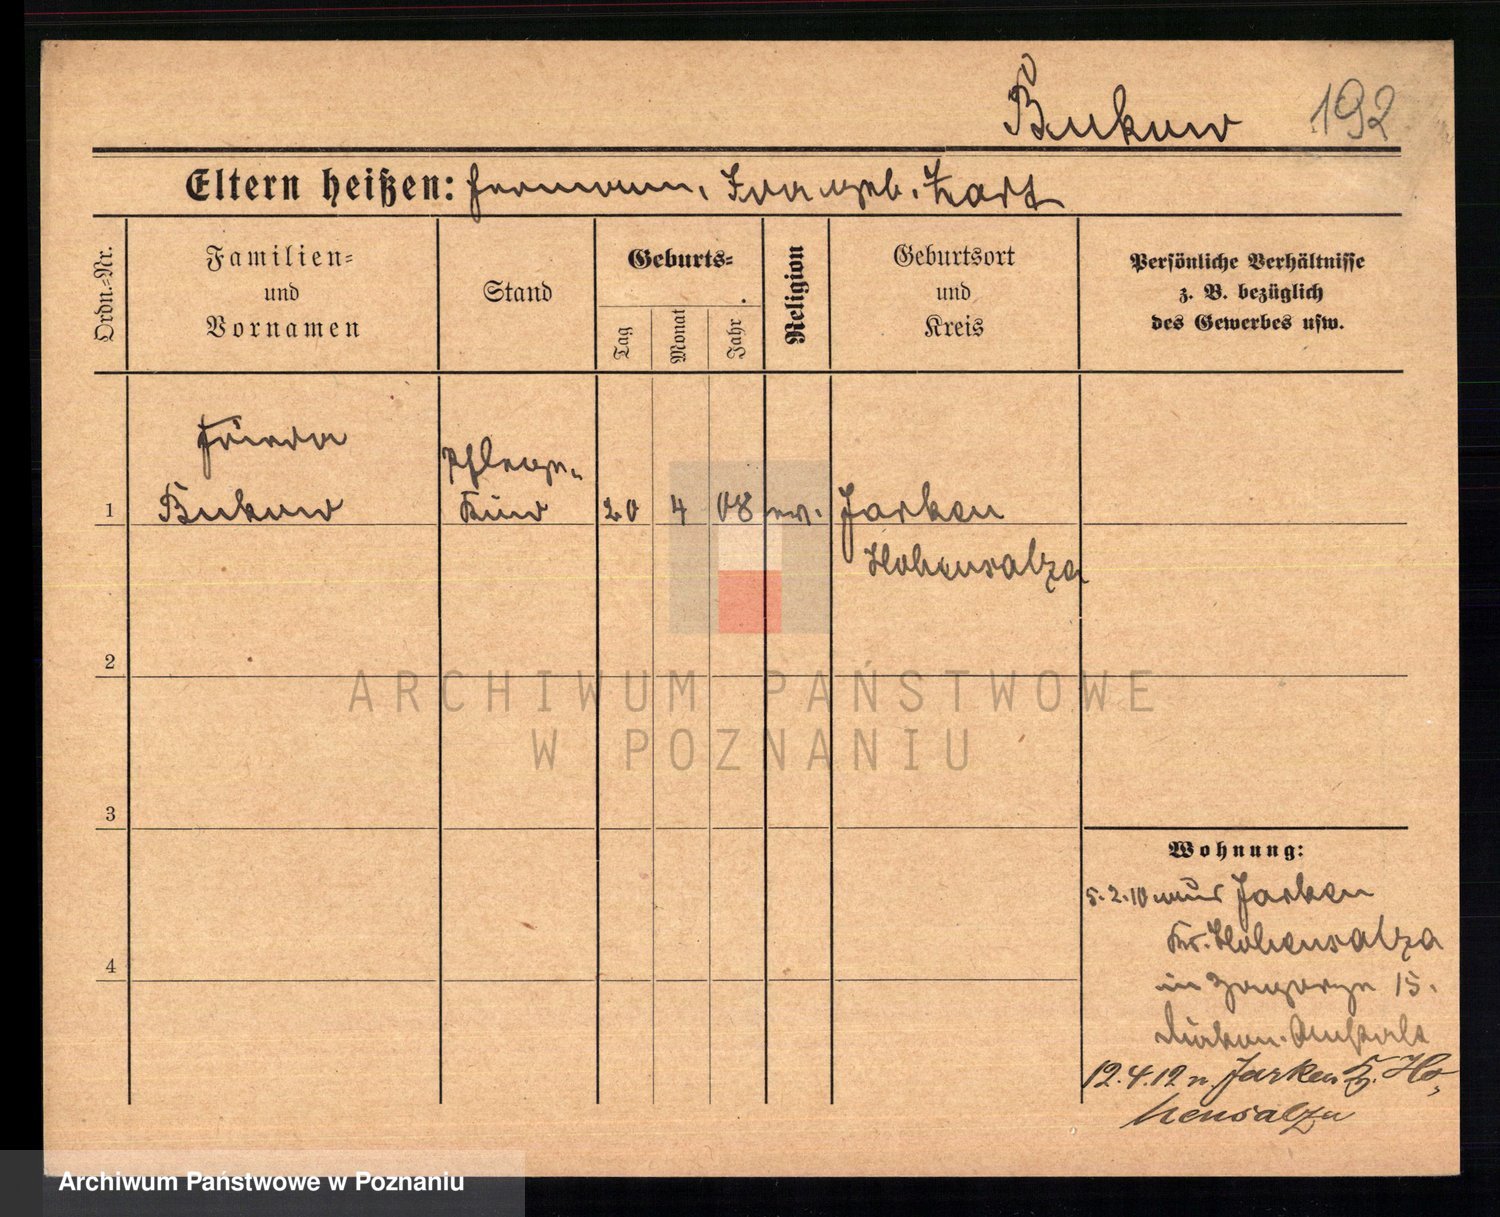 Bukow 192
Eltern heißen: Hermann, Ida geb. Hart
Ordn.=Nr.
Familien=
und
Vornamen
Stand
Geburts=
Tag
Monat
Jahr
Religion
Geburtsort
und
Kreis
Persönliche Verhältnisse
z. B. bezüglich
des Gewerbes usw.
Frieda
Pflege-
1 Bukow Kind 20 4 08 ev. Jarken
Hohensalza
2
3
4
Wohnung:
5.2.10 aus Jarken
Kr. Hohensalza
in 15.
Diakon. Anstalt
12.4.12 n. Jarken Kr. Ho-
hensalza
ARCHIWUM PAŃSTWOWE
W POZNANIU
Archiwum Państwowe w Poznaniu